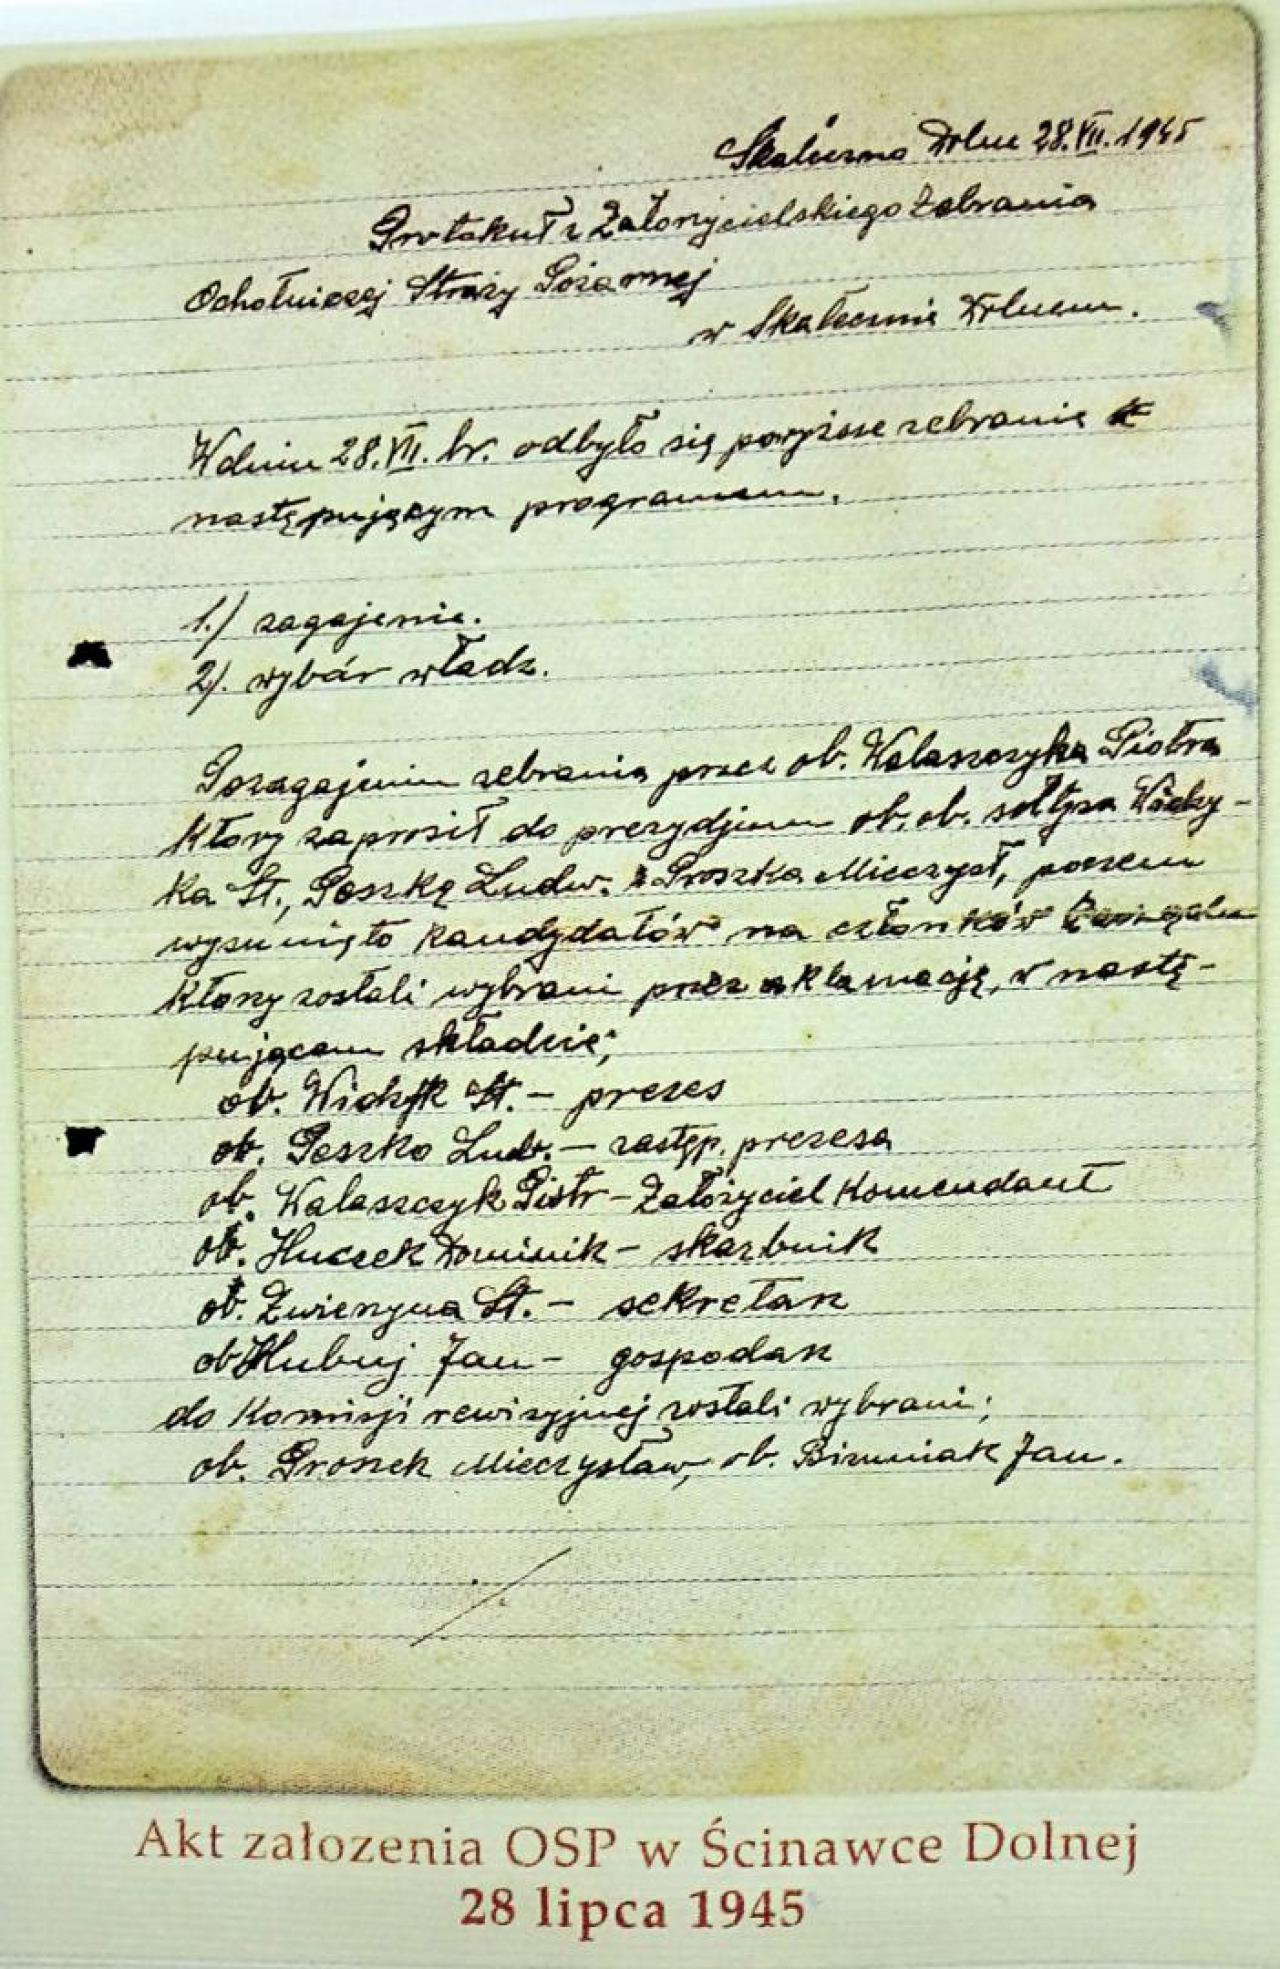 Skaleczno Dolne 28.VII.1945
Protokuł z Założycielskiego Zebrania
Ochotniczej Straży Pożarnej
w Skalecznie Dolnem.
W dniu 28.VII. br. odbyło się powyższe zebranie z
następującym programem.
1.) zagajenie.
2). wybór władz.
Po zagajeniu zebrania przez ob. Walaszczyka Piotra
który zaprosił do prezydjum ob. ob. sołtysa
ka St., Poszkę Ludw. i Proszka Mieczysł, poczem
wysunięto kandydatów na członków
którzy zostali wybrani przez aklamację, w nastę-
pującem składzie;
ob. Widzyk St. - prezes
ob. Poszko Ludw. - zastęp. prezesa
ob. Walaszczyk Piotr - Założyciel Komendant
ob. Huczek Dominik - skarbnik
ob. St. - sekretarz
ob Jan - gospodarz
do Komisji rewizyjnej zostali wybrani;
ob. Proszek Mieczysław, ob. Jan.
Akt załozenia OSP w Ścinawce Dolnej
28 lipca 1945